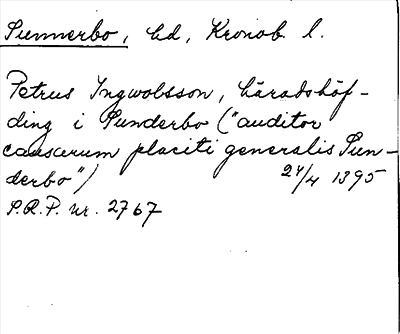 Sunnerbo, hd, Kronob. l.
Petrus Ingwolsson, häradshöf-
ding i Sunderbo ("auditor
causarum placiti generalis Sun-
derbo")
24/4 1395
S.R.P. nr. 2767